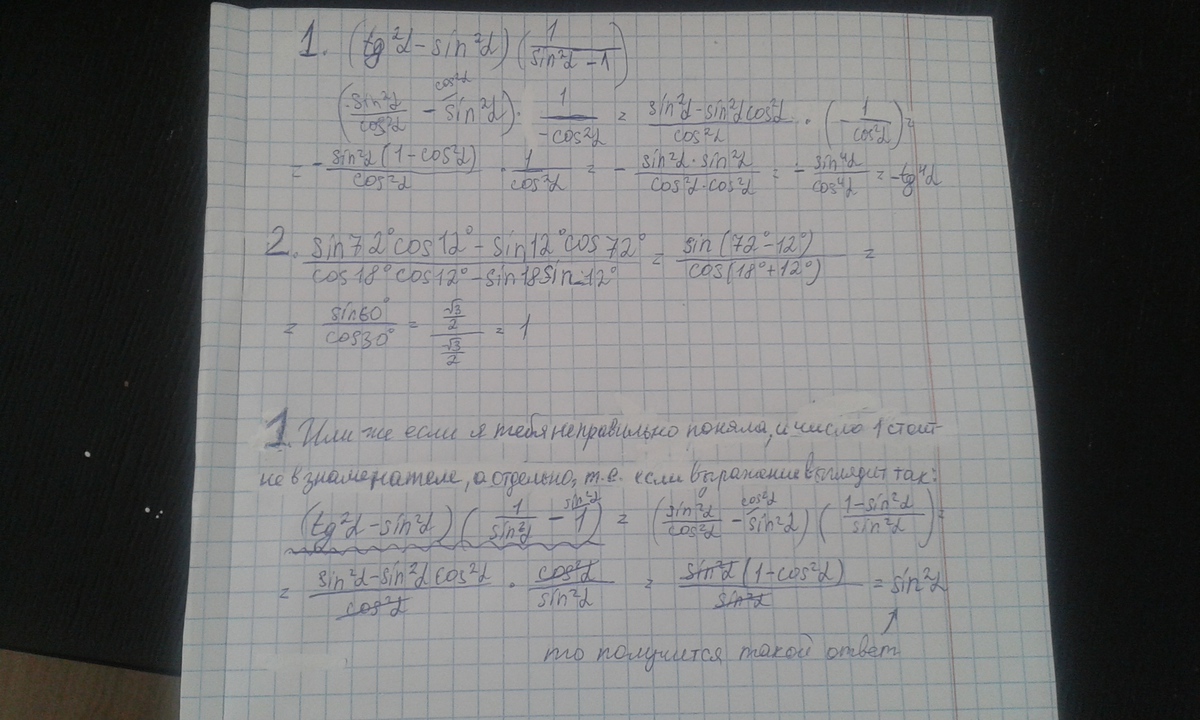 1. (tg²α – sin²α) (1/(sin²α – 1))
(sin²α/cos²α – sin²α^(cos²α)) · 1/(–cos²α) = (sin²α – sin²α cos²α)/cos²α · (–1/cos²α) =
= – sin²α(1 – cos²α)/cos²α · 1/cos²α = – (sin²α · sin²α)/(cos²α · cos²α) = – sin⁴α/cos⁴α = –tg⁴α
2. (sin72°cos12° – sin12°cos72°)/(cos18°cos12° – sin18sin12°) = sin(72°–12°)/cos(18°+12°) =
= sin60°/cos30° = (√3/2)/(√3/2) = 1
1. Или же если я тебя неправильно поняла, и число 1 стоит
не в знаменателе, а отдельно, т.е. если выражение выглядит так:
(tg²α – sin²α) (1/sin²α – 1^(sin²α)) = (sin²α/cos²α – sin²α^(cos²α)) ((1–sin²α)/sin²α) =
= (sin²α – sin²α cos²α)/cos²α · cos²α/sin²α = sin²α(1–cos²α)/sin²α = sin²α
то получится такой ответ